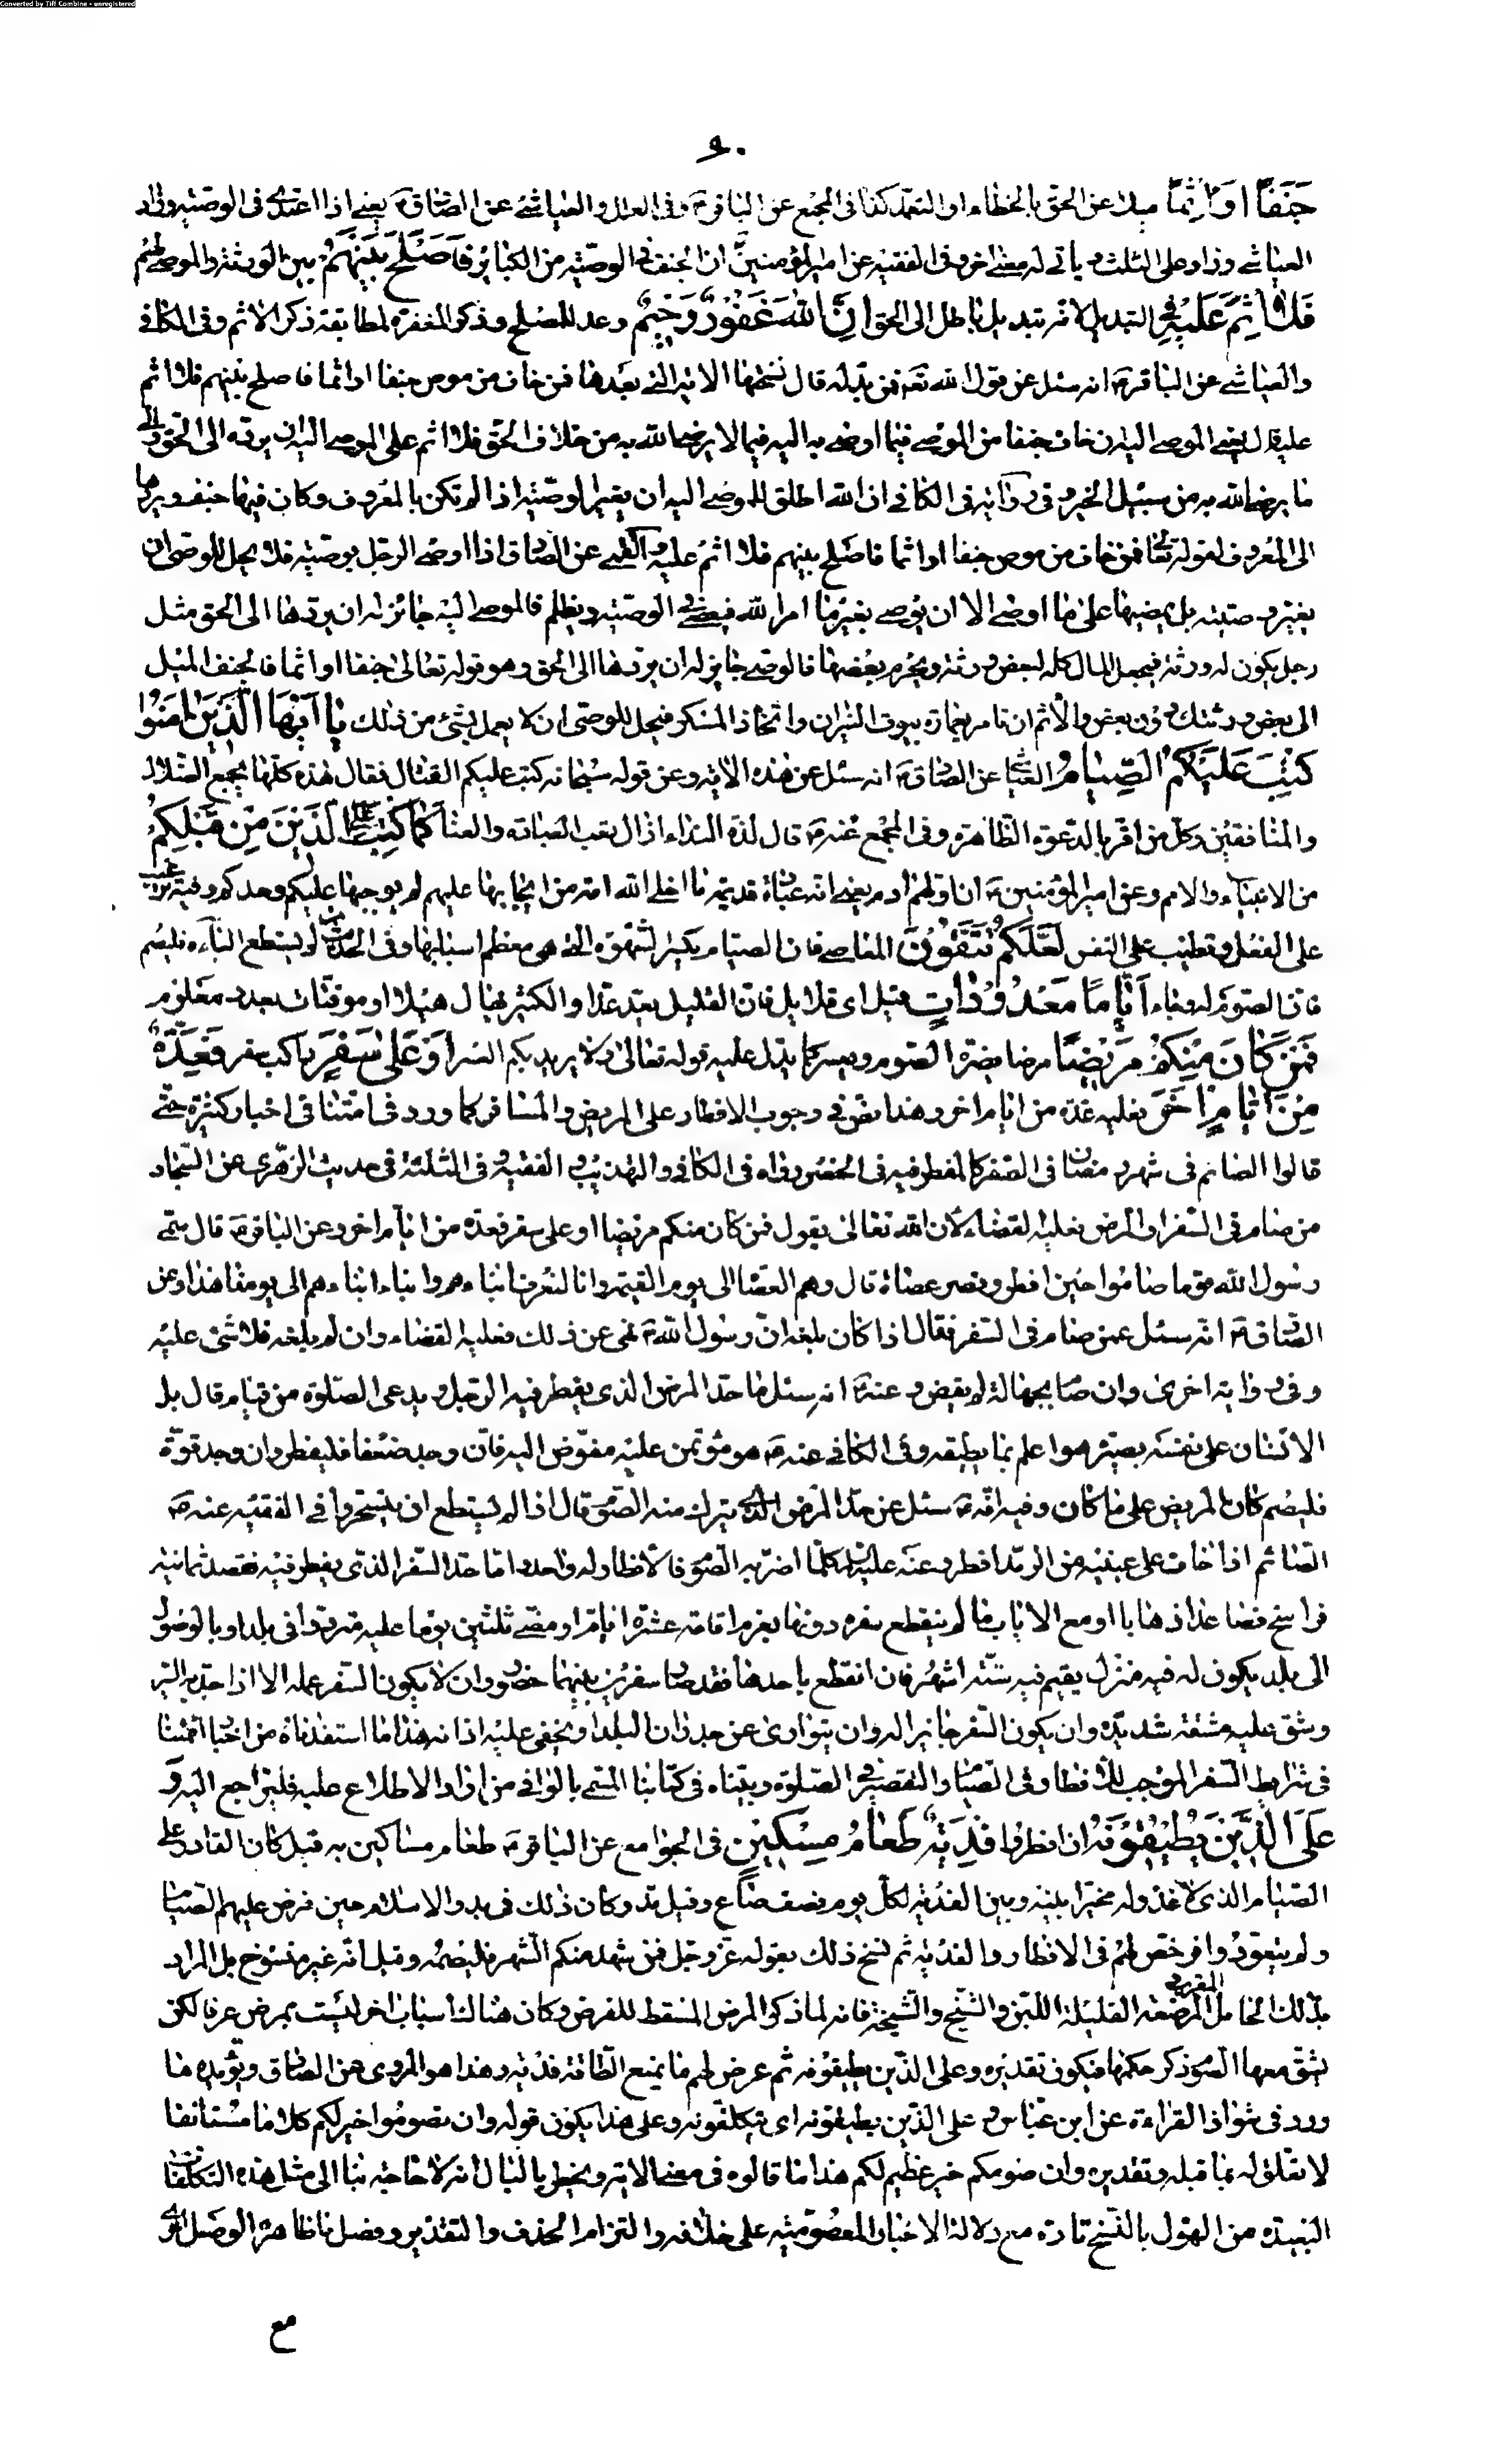 Converted by Tiff Combine - unregistered
٩٠
جَنَفًا أَوْ إِثْمًا ميلا عن الحق بالخطاء او التعمد كذا فى المجمع عن الباقر ع وفى العلل والعياشي عن الصادق ع يعنى اذا اعتدى فى الوصية وزاد
العياشي وزاد على الثلث ويأتي له معنى اخر وفى الفقيه عن امير المؤمنين ان الجنف فى الوصية من الكبائر فَأَصْلَحَ بَيْنَهُمْ بين الورثة والموصى لهم
فَلَا إِثْمَ عَلَيْهِ فى التبديل لانه تبديل باطل الى الحق إِنَّ اللهَ غَفُورٌ رَحِيمٌ وعد للمصلح وذكر المغفرة لمطابقة ذكر الاثم وفى الكافي
والعياشي عن الباقر ع انه سئل عن قول الله تع فمن بدله قال نسختها الاية التي بعدها فمن خاف من موص جنفا او اثما فاصلح بينهم فلا اثم
عليه قال يعنى الموصى اليه ان خاف جنفا من الموصي فيما اوصى به اليه فيما لا يرضى الله به من خلاف الحق فلا اثم على الموصى اليه ان يرده الى الحق والى
ما يرضى الله به من سبيل الخير وفى رواية فى الكافي ان الله اطلق للموصى اليه ان يغير الوصية اذا لم تكن بالمعروف وكان فيها جنف ويردها
الى المعروف لقوله تعالى فمن خاف من موص جنفا او اثما فاصلح بينهم فلا اثم عليه والقمي عن الصادق اذا اوصى الرجل بوصية فلا يحل للوصي ان
يغير وصيته بل يمضيها على ما اوصى الا ان يوصى بغير ما امر الله فيعصى فى الوصية ويظلم فالموصى اليه جائز له ان يردها الى الحق مثل
رجل يكون له ورثة فيجعل المال كله لبعض ورثته ويحرم بعضها فالوصي جايز له ان يردها الى الحق وهو قوله تعالى جنفا او اثما فالجنف الميل
الى بعض ورثتك دون بعض والاثم ان تامر بعمارة بيوت النيران واتخاذ المسكر فيحل للوصي ان لا يعمل بشئ من ذلك يَا أَيُّهَا الَّذِينَ آمَنُوا
كُتِبَ عَلَيْكُمُ الصِّيَامُ العياشي عن الصادق ع انه سئل عن هذه الاية وعن قوله سبحانه كتب عليكم القتال فقال هذه كلها يجمع الضلال
والمنافقين وكل من اقر بالدعوة الظاهرة وفى المجمع عنه ع قال لذة النداء ازال تعب العبادة والعنا كَمَا كُتِبَ عَلَى الَّذِينَ مِنْ قَبْلِكُمْ
من الانبياء والامم وعن امير المؤمنين ع ان اولهم ادم يعنى انه عبادة قديمة ما اخلى الله امة من ايجابها عليهم لم يوجبها عليكم وحدكم وفيه ترغيب
على الفعل وتطييب على النفس لَعَلَّكُمْ تَتَّقُونَ المعاصي فان الصيام يكسر الشهوة التي هي معظم اسبابها وفى الحديث من لم يستطع الباءة فليصم
فان الصوم له وجاء أَيَّامًا مَعْدُودَاتٍ قيل اى قلايل فان القليل يعد عدا والكثير يهال هيلا او موقتات بعدد معلوم
فَمَنْ كَانَ مِنْكُمْ مَرِيضًا مرضا يضره الصوم ويعسر كما يدل عليه قوله تعالى ولا يريد بكم العسر أَوْ عَلَى سَفَرٍ راكب سفر فَعِدَّةٌ
مِنْ أَيَّامٍ أُخَرَ فعليه عدة من ايام اخر وهذا نص فى وجوب الافطار على المريض والمسافر كما ورد عن ائمتنا فى اخبار كثيرة حتى
قالوا الصائم فى شهر رمضان فى السفر كالمفطر فيه فى الحضر رواه فى الكافي والتهذيب والفقيه وفى الثلثة فى حديث الزهرى عن السجاد
من صام فى السفر او المرض فعليه القضاء لان الله تعالى يقول فمن كان منكم مريضا او على سفر فعدة من ايام اخر وعن الباقر ع قال سمى
رسول الله ص قوما صاموا حين افطر وقصر عصاة قال وهم العصاة الى يوم القيمة وانا لنعرف ابناءهم وابناء ابناءهم الى يومنا هذا وعن
الصادق ع انه سئل عمن صام فى السفر فقال اذا كان بلغه ان رسول الله ص نهى عن ذلك فعليه القضاء وان لم يبلغه فلا شئ عليه
وفى رواية اخرى وان صام بجهالة لم يقض وعنه ع انه سئل ما حد المرض الذى يفطر فيه الرجل ويدع الصلوة من قيام قال بل
الانسان على نفسه بصيرة هو اعلم بما يطيقه وفى الكافي عنه ع هو مؤتمن عليه مفوض اليه فان وجد ضعفا فليفطر وان وجد قوة
فليصم كان المريض على ما كان وفيه انه ع سئل عن حد المرض الذى يترك منه الصوم قال اذا لم يستطع ان يتسحر وفي الفقيه عنه ع
الصائم اذا خاف على عينيه من الرمد افطر وعنه عليه السلم كلما اضر به الصوم فالافطار له واجب واما حد السفر الذى يفطر فيه فقصد ثمانية
فراسخ فصاعدا ذهابا او مع الاياب ما لم ينقطع سفره دونها بعزم اقامة عشرة ايام او مضى ثلثين يوما عليه مترددا فى بلد او بالوصول
الى بلد يكون له فيه منزل يقيم فيه ستة اشهر فان انقطع باحدها فقد صار سفرين بينهما حضر وان لا يكون السفر عمله الا اذا جد به السير
وشق عليه مشقة شديدة وان يكون السفر جايزا له وان يتوارى عن جدران البلد او يخفى عليه اذانه هذا ما استفدناه من اخبار ائمتنا
فى شرايط السفر الموجب للافطار فى الصيام والتقصير فى الصلوة وبيناه فى كتابنا المسمى بالوافي من اراد الاطلاع عليه فليراجع اليه وَ
عَلَى الَّذِينَ يُطِيقُونَهُ ان افطروا فِدْيَةٌ طَعَامُ مِسْكِينٍ فى الجوامع عن الباقر ع طعام مساكين به قيل كان القادر على
الصيام الذى لا عذر له مخيرا بينه وبين الفدية لكل يوم نصف صاع وقيل مد وكان ذلك فى بدو الاسلام حين فرض عليهم الصيام
ولم يتعودوا فرخص لهم فى الافطار والفدية ثم نسخ ذلك بقوله عز وجل فمن شهد منكم الشهر فليصمه وقيل انه غير منسوخ بل المراد
بذلك الحامل المقرب والمرضعة القليلة اللبن والشيخ والشيخة فانه لما ذكر المرض المسقط للفرض وكان هناك اسباب اخر ليست بمرض عرفا لكن
يشق معها الصوم ذكر حكمها فيكون تقديره وعلى الذين يطيقونه ثم عرض لهم ما يمنع الطاقة فدية وهذا هو المروى عن الصادق ويؤيده ما
ورد فى شواذ القراءة عن ابن عباس وعلى الذين يطوقونه اى يتكلفونه وعلى هذا يكون قوله وان تصوموا خير لكم كلاما مستانفا
لا تعلق له بما قبله وتقديره وان صومكم خير عظيم لكم هذا ما قالوه فى معنى الاية ويخطر بالبال انه لا حاجة بنا الى مثل هذه التكلفات
البعيدة من القول بالنسخ تارة مع دلالة الاخبار المعصومية على خلافه والتزام الحذف والتقدير وفصل ما ظاهره الوصل اخرى
مع